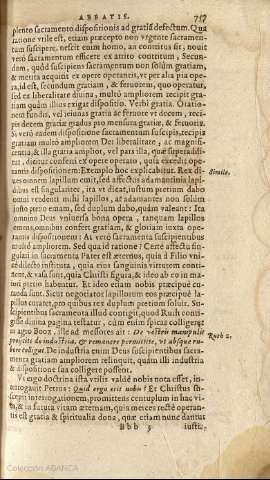 ABBATIS. 757
pleno sacramento dispositionis ad gratiæ defectum. Qua
ratione vtile est, etiam præcepto non vrgente sacramen-
tum suscipere, nescit enim homo, an contritus sit, nouit
verò sacramentum efficere ex attrito contritum, Secun-
dam, quòd suscipiens sacramentum non solùm gratiam,
& merita acquirit ex opere operantis, vt per alia pia ope-
ra, id est, secundum gratiam, & feruorem, quo operatur,
sed ex liberalitate diuina, multò ampliorem recipit gra-
tiam quàm illius exigat dispositio. Verbi gratia. Oratio-
nem fundis, vel ieiunas gratia & feruore vt decem, reci-
pis decem gratiæ gradus pro mensura gratiæ, & feruoris.
Si verò eadem dispositione sacramentum suscipis, recipis
gratiam multò ampliorem Dei liberalitate, ac magnifi-
centia, & illa gratia amplior, vel pars illa, quæ superaddi-
tur, dicitur conferri ex opere operato, quia excedit ope-
rantis dispositionem: Exemplo hoc explicabitur. Rex di-
ues omnem lapillum emit, sed affectus adamantinis lapi-
dibus est singularis, ita vt dicat, iustum pretium dabo
omni vendenti mihi lapillos, at adamantes non solùm
iusto pretio emam, sed duplum dabo, quàm valeant: Ita
omnino Deus vniuersa bona opera, tanquam lapillos
emens, omnibus confert gratiam, & gloriam iuxta ope-
rantis dispositionem: At verò Sacramenta suscipientibus
multò ampliorem. Sed qua id ratione? Certè affectu sin-
gulari in sacramenta Pater est æternus, quia à Filio vni-
cè dilecto instituta, quia eius sanguinis virtutem conti-
nent, & vasa sunt, quia Christi figura, & ideo ab eo in ma-
iori pretio habentur. Et ideo etiam nobis præcipuè cu-
randa sunt. Sicut negotiator lapillorum eos præcipuè la-
pillos curaret, pro quibus rex duplum pretium soluit. Su-
scipientibus sacramenta illud contigit, quod Ruth conti-
gisse diuina pagina testatur, cùm enim spicas colligeret
in agro Booz, ille ad messores ait: De vestris manipulis
proijcite de industria, & remanere permittite, vt absque ru-
bore colligat. De industria enim Deus suscipientibus sacra-
menta gratiam ampliorem relinquit, quàm illi industria
& dispositione sua colligere possent.
Vt ergo doctrina ista vtilis valdè nobis nota esset, in-
terrogauit Petrus: Quid ergo erit nobis? Et Christus su-
scepit interrogationem, promittens centuplum in hac vi-
ta, & in futura vitam æternam, quia merces rectè operan-
tis est gratia & spiritualia dona, quæ etiam nunc dantur
Bbb 3 iustis,
Simile.
Ruth 2.
Colección ABANCA